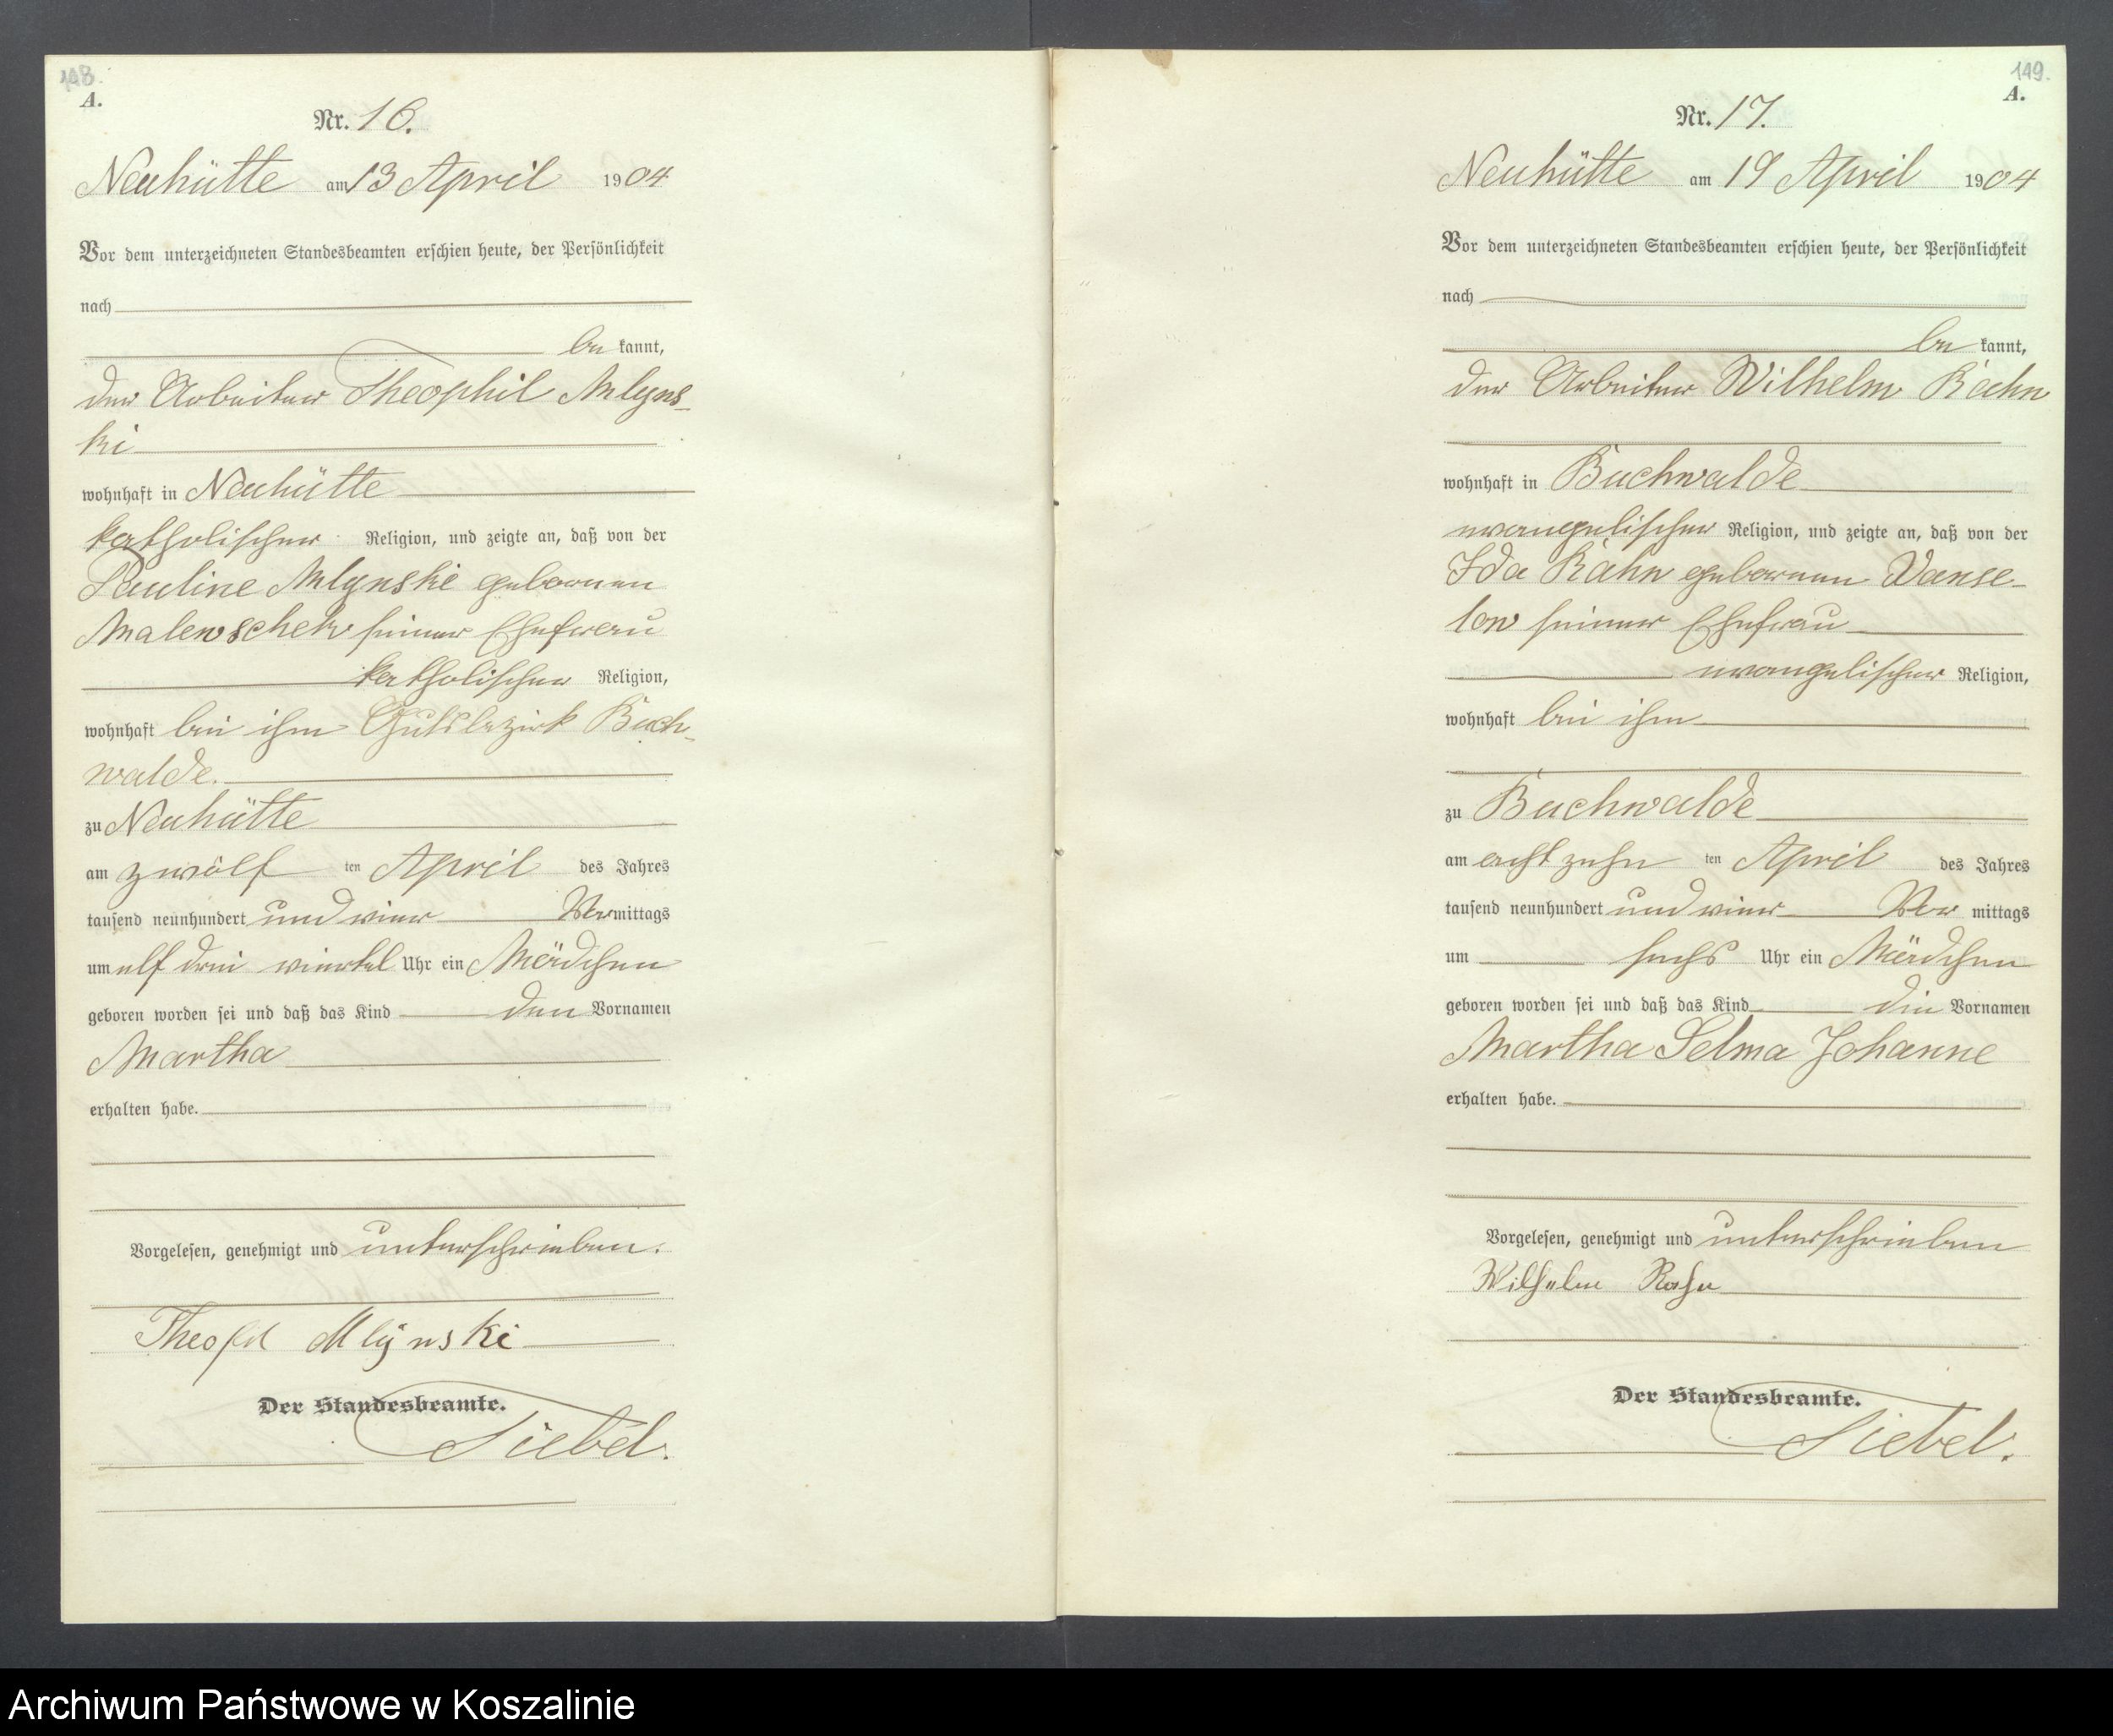 148.
A.
Nr. 16.
Neuhütte am 13 April 1904
Vor dem unterzeichneten Standesbeamten erschien heute, der Persönlichkeit
nach
be kannt,
der Arbeiter Theophil Mlyns-
ki
wohnhaft in Neuhütte
katholischer Religion, und zeigte an, daß von der
Pauline Mlynski geborenen
Malenschek seiner Ehefrau
katholischer Religion,
wohnhaft bei ihm Gutsbezirk Buch-
walde.
zu Neuhütte
am zwölf ten April des Jahres
tausend neunhundert und vier Vormittags
um elf drei viertel Uhr ein Mädchen
geboren worden sei und daß das Kind den Vornamen
Martha
erhalten habe.
Vorgelesen, genehmigt und unterschrieben.
Mlynski
Der Standesbeamte.
Siebel.
149.
A.
Nr. 17.
Neuhütte am 19 April 1904
Vor dem unterzeichneten Standesbeamten erschien heute, der Persönlichkeit
nach
be kannt,
der Arbeiter Wilhelm Rahn
wohnhaft in Buchwalde
evangelischer Religion, und zeigte an, daß von der
Ida Rahn geborenen Vanse-
low seiner Ehefrau
evangelischer Religion,
wohnhaft bei ihm
zu Buchwalde
am acht zehn ten April des Jahres
tausend neunhundert und vier Vor mittags
um sechs Uhr ein Mädchen
geboren worden sei und daß das Kind die Vornamen
Martha Selma Johanne
erhalten habe.
Vorgelesen, genehmigt und unterschrieben
Wilhelm Rahn
Der Standesbeamte.
Siebel.
Archiwum Państwowe w Koszalinie